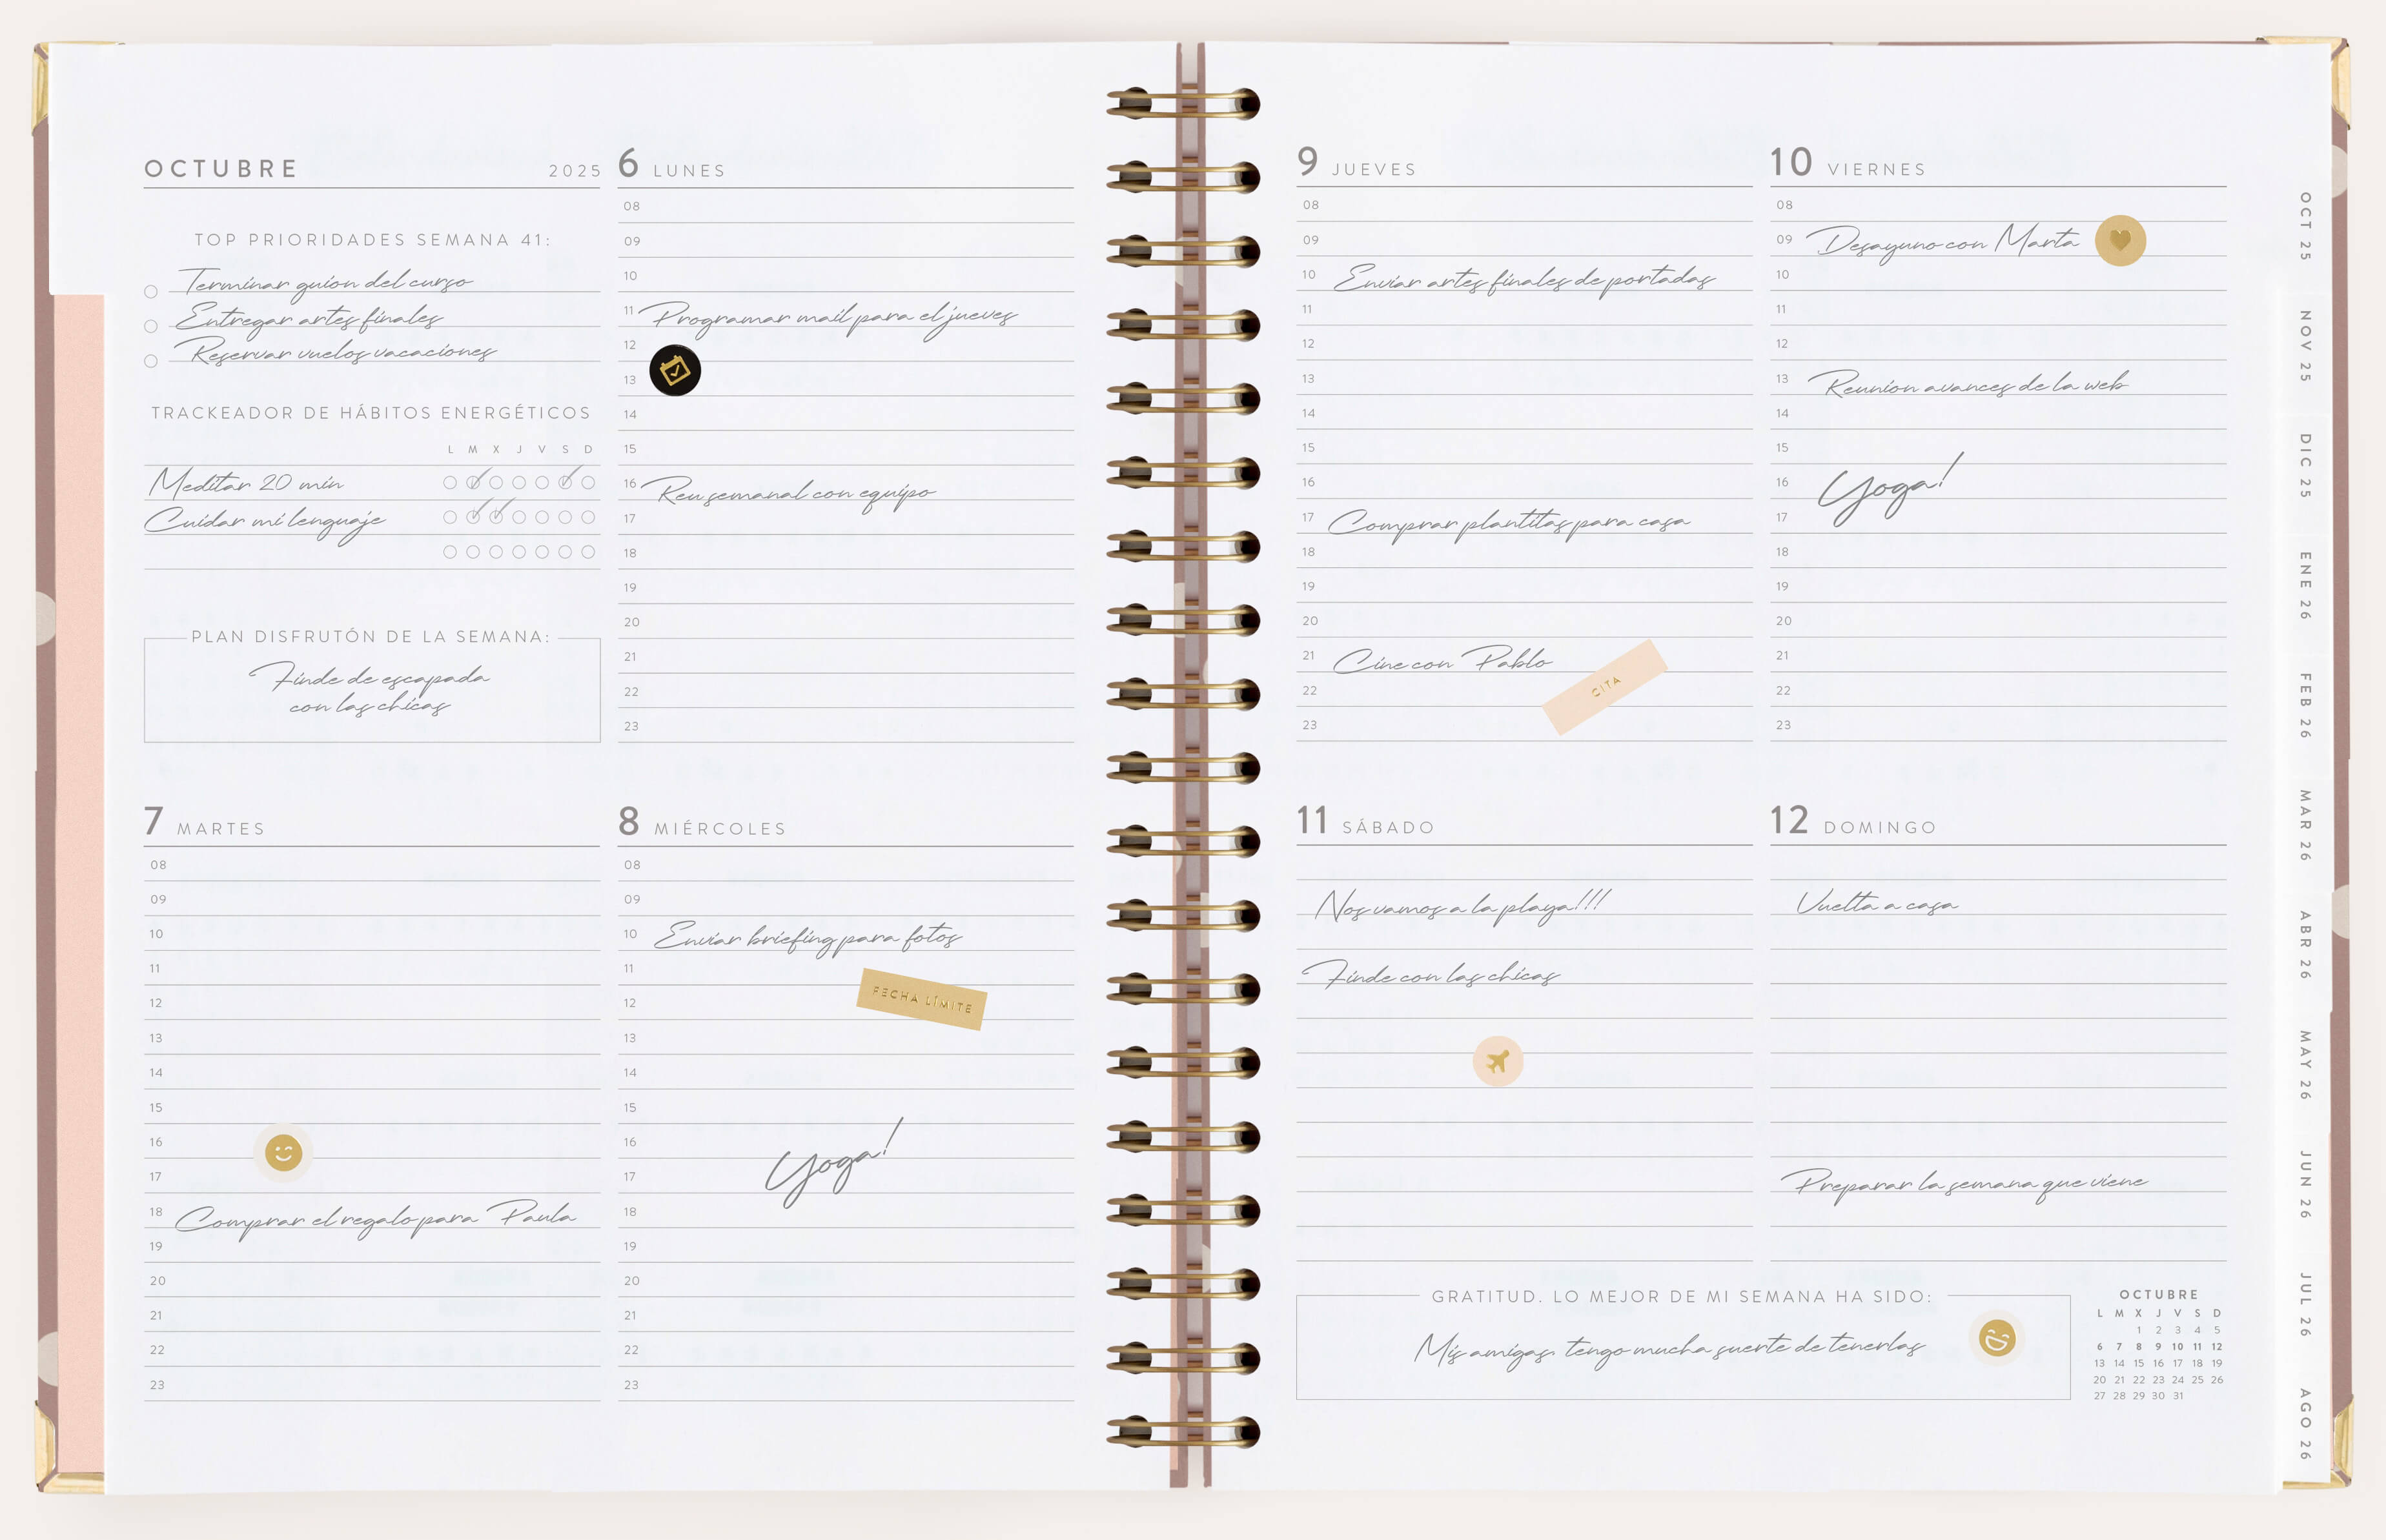 OCTUBRE 2025
TOP PRIORIDADES SEMANA 41:
Terminar guion del curso
Entregar artes finales
Reservar vuelos vacaciones
TRACKEADOR DE HÁBITOS ENERGÉTICOS
L M X J V S D
Meditar 20 min
Cuidar mi lenguaje
PLAN DISFRUTÓN DE LA SEMANA:
Finde de escapada
con las chicas
6 LUNES
08
09
10
11 Programar mail para el jueves
12
13
14
15
16 Reu semanal con equipo
17
18
19
20
21
22
23
7 MARTES
08
09
10
11
12
13
14
15
16
17
18 Comprar el regalo para Paula
19
20
21
22
23
8 MIÉRCOLES
08
09
10 Enviar briefing para fotos
11
FECHA LÍMITE
12
13
14
15
16
Yoga!
17
18
19
20
21
22
23
9 JUEVES
08
09
10 Enviar artes finales de portadas
11
12
13
14
15
16
17 Comprar plantitas para casa
18
19
20
21 Cine con Pablo
22
CITA
23
10 VIERNES
08
09 Desayuno con Marta
10
11
12
13 Reunion avances de la web
14
15
16 Yoga!
17
18
19
20
21
22
23
11 SÁBADO
Nos vamos a la playa!!!
Finde con las chicas
12 DOMINGO
Vuelta a casa
Preparar la semana que viene
GRATITUD. LO MEJOR DE MI SEMANA HA SIDO:
Mis amigas, tengo mucha suerte de tenerlas
OCTUBRE
L M X J V S D
1 2 3 4 5
6 7 8 9 10 11 12
13 14 15 16 17 18 19
20 21 22 23 24 25 26
27 28 29 30 31
OCT 25
NOV 25
DIC 25
ENE 26
FEB 26
MAR 26
ABR 26
MAY 26
JUN 26
JUL 26
AGO 26